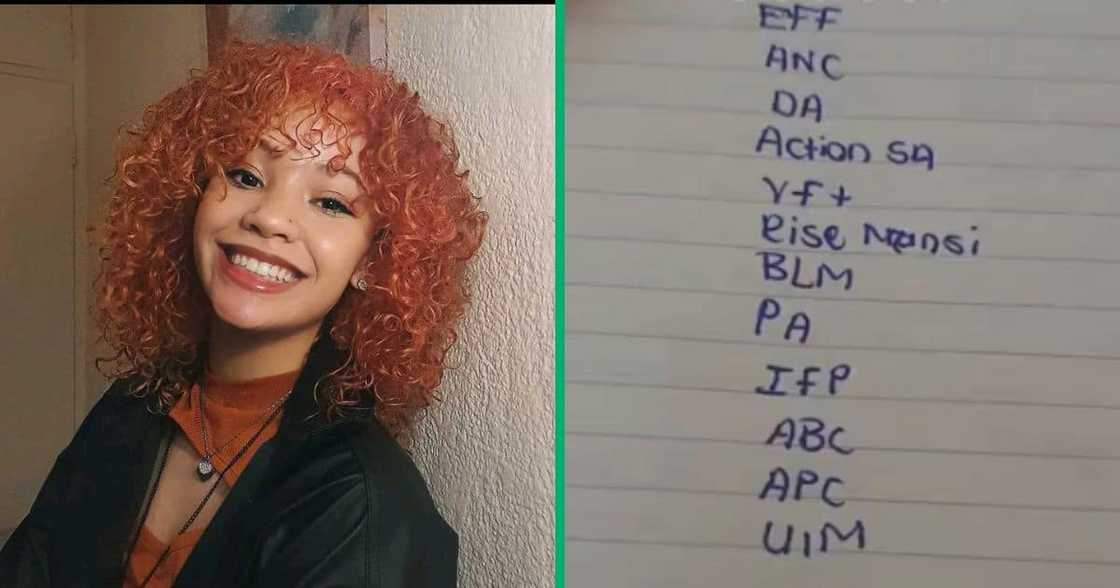 EFF
ANC
DA
Action SA
Vf+
Rise Mzansi
BLM
PA
IFP
ABC
APC
UIM